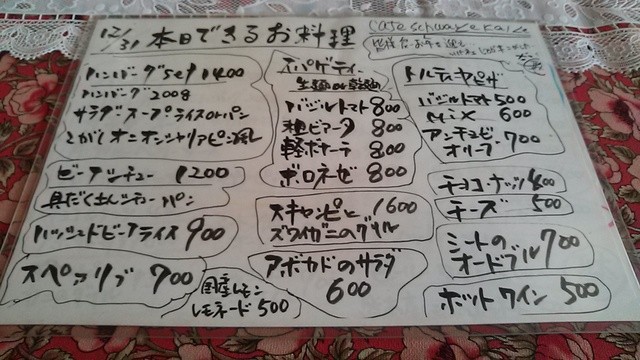 12/31 本日できるお料理
cafe schwarze Katze
ハンバーグset 1400
ハンバーグ200g
サラダ・スープライスorパン
こがしオニオンシャリアピン風
ビーフシチュー 1200
具だくさんシチュー パン
ハッシュドビーフライス 900
スペアリブ 700
国産レモン
レモネード 500
スパゲティー
生麺or乾麺
バジルトマト 800
800
軽ボナーラ 800
ボロネーゼ 800
スキャンピと 1600
ズワイガニのグリル
アボカドのサラダ
600
トルティーヤピザ
バジルトマト 500
Mix 600
アンチョビー
オリーブ 700
チョコ・ナッツ 400
チーズ 500
ミートのオードブル 700
ホットワイン 500